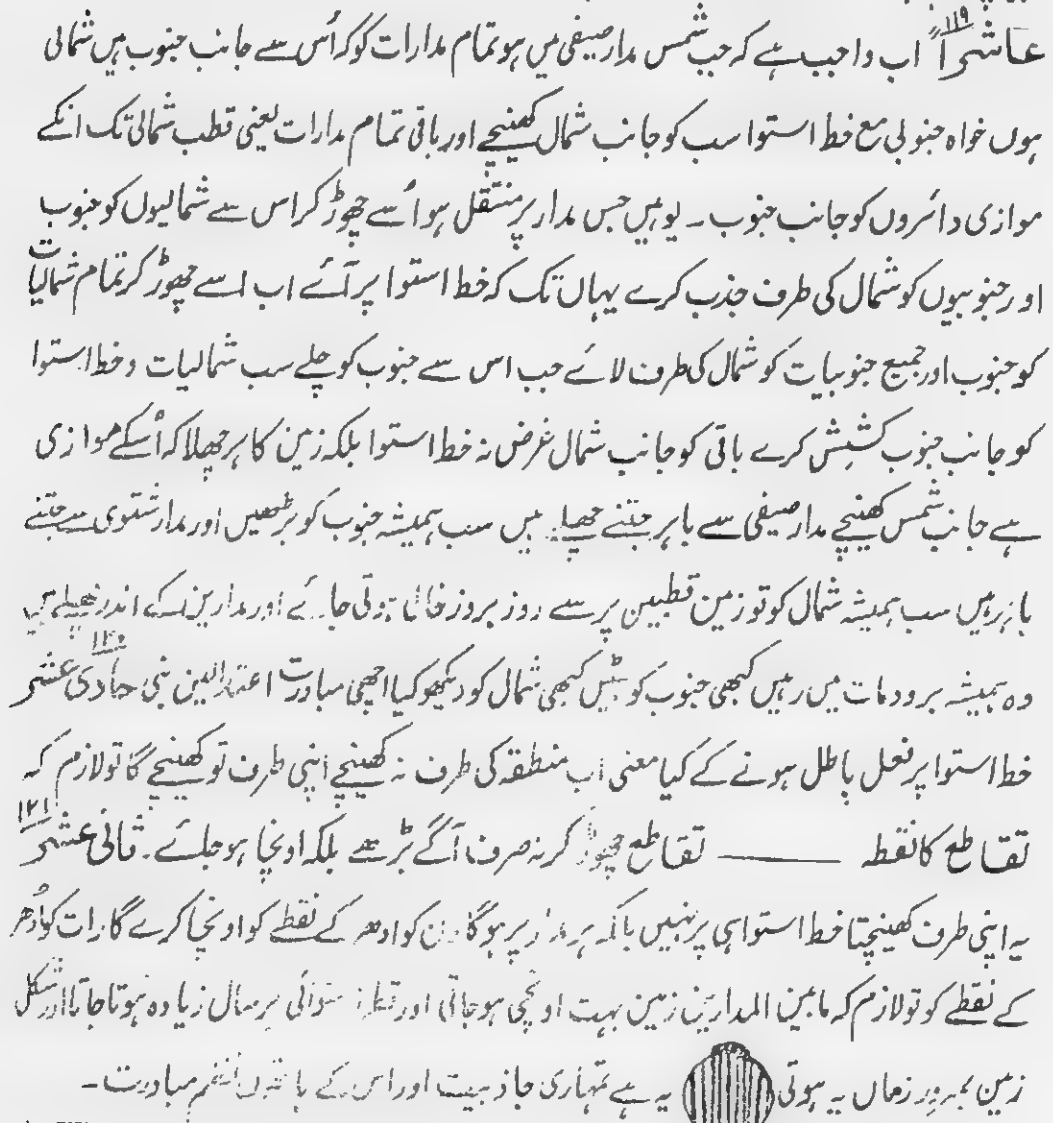 عاشراً ۱۱۹ اب واجب ہے کہ جب شمس مدار صیفی میں ہو تمام مدارات کو کہ اُس سے جانب جنوب ہیں شمالی
ہوں خواہ جنوبی مع خط استوا سب کو جانب شمال کھینچے اور باقی تمام مدارات یعنی قطب شمالی تک انکے
موازی دائروں کو جانب جنوب ۔ یوہیں جس مدار پر منتقل ہو اُسے چھوڑ کر اس سے شمالیوں کو جنوب
اور جنوبیوں کو شمال کی طرف جذب کرے یہاں تک کہ خط استوا پر آئے اب اسے چھوڑ کر تمام شمالیات
کو جنوب اور جمیع جنوبیات کو شمال کی طرف لائے جب اس سے جنوب کو چلے سب شمالیات و خط استوا
کو جانب جنوب کشش کرے باقی کو جانب شمال غرض نہ خط استوا بلکہ زمین کا ہر چھلا کہ اُسکے موازی
ہے جانب شمس کھینچے مدار صیفی سے باہر جتنے چھلے ہیں سب ہمیشہ جنوب کو بڑھیں اور مدار شتوی سے جتنے
باہر ہیں سب ہمیشہ شمال کو تو زمین قطبین پر سے روز بروز خالی ہوتی جائے اور مدارین کے اندر چھلے ہیں
وہ ہمیشہ میں رہیں کبھی جنوب کو ہٹیں کبھی شمال کو دیکھو کیا اچھی مبادرت اعتدالین بنی حادی عشر ۱۲۰
خط استوا پر فعل باطل ہونے کے کیا معنی اب منطقہ کی طرف نہ کھینچے اپنی طرف تو کھینچے گا تو لازم کہ
تقاطع کا نقطہ ——— تقاطع چھوڑ کر نہ صرف آگے بڑھے بلکہ اونچا ہو جائے ۔ ثانی عشر ۱۲۱
یہ اپنی طرف کھینچنا خط استوا ہی پر نہیں بلکہ ہر مدار پر ہوگا دن کو ادھر کے نقطے کو اونچا کرے گا رات کو اُدھر
کے نقطے کو تو لازم کہ مابین المدارین زمین بہت اونچی ہو جاتی اور قطر استوائی ہر سال زیادہ ہوتا جاتا اور شکل
زمین بمرور زماں یہ ہوتی یہ ہے تمہاری جاذبیت اور اس کے ہاتھوں مبادرت ۔